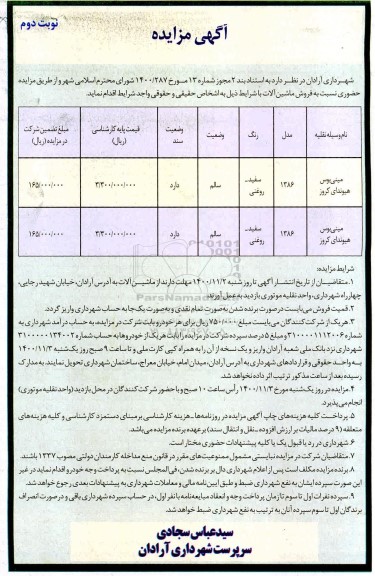 نوبت دوم
آگهی مزایده
شهرداری آرادان در نظر دارد به استناد بند ۲ مجوز شماره ۱۳ مورخ ۱۴۰۰/۲۸۷ شورای محترم اسلامی شهر و از طریق مزایده
حضوری نسبت به فروش ماشین آلات با شرایط ذیل به اشخاص حقیقی و حقوقی واجد شرایط اقدام نماید.
نام وسیله نقلیه مدل رنگ وضعیت وضعیت سند قیمت پایه کارشناسی (ریال) مبلغ تضمین شرکت در مزایده (ریال)
مینی‌بوس هیوندای کروز ۱۳۸۶ سفید_ روغنی سالم دارد ۳/۳۰۰/۰۰۰/۰۰۰ ۱۶۵/۰۰۰/۰۰۰
مینی‌بوس هیوندای کروز ۱۳۸۶ سفید_ روغنی سالم دارد ۳/۳۰۰/۰۰۰/۰۰۰ ۱۶۵/۰۰۰/۰۰۰
شرایط مزایده:
۱. متقاضیان از تاریخ انتشار آگهی تا روز شنبه ۱۴۰۰/۱۱/۲ مهلت دارند از ماشین آلات به آدرس آرادان، خیابان شهید رجایی،
چهارراه شهرداری، واحد نقلیه موتوری بازدید به عمل آورند.
۲. قیمت فروش می‌بایست در صورت برنده شدن به صورت تمام نقدی و به صورت یک‌جا به حساب شهرداری واریز گردد.
۳. هر یک از شرکت‌کنندگان می‌بایست مبلغ ۷۵۰/۰۰۰ ریال برای هر خودرو بابت شرکت در مزایده، به حساب درآمد شهرداری به
شماره ۳۱۰۰۰۰۱۱۱۲۰۰۶ و مبلغ ۵ درصد سپرده شرکت در مزایده را بابت هر یک از خودروها به حساب شماره ۳۱۰۰۰۰۰۱۳۴۰۰۲
شهرداری نزد بانک ملی شعبه آرادان واریز و یک نسخه از آن را به همراه کپی کارت ملی و تا ساعت ۹ صبح روز یکشنبه ۱۴۰۰/۱۱/۳
به واحد حقوقی و قراردادهای شهرداری به آدرس آرادان، میدان امام، خیابان معراج، ساختمان شهرداری تحویل نمایند. به مدارک
رسیده بعد از ساعت مذکور ترتیب اثر داده نخواهد شد.
۴. مزایده در روز یکشنبه مورخ ۱۴۰۰/۱۱/۳ رأس ساعت ۱۰ صبح و با حضور شرکت‌کنندگان در محل بازدید (واحد نقلیه موتوری)
انجام می‌پذیرد.
۵. پرداخت کلیه هزینه‌های چاپ آگهی مزایده در روزنامه‌ها_ هزینه کارشناسی بر مبنای دستمزد کارشناسی و کلیه هزینه‌های
متعلقه (۹ درصد مالیات بر ارزش افزوده_ نقل و انتقال سند) بر عهده برنده مزایده می‌باشد.
۶. شهرداری در رد یا قبول یک یا کلیه پیشنهادات حضوری مختار است.
۷. متقاضیان شرکت در مزایده نبایستی مشمول ممنوعیت‌های مقرر در قانون منع مداخله کارمندان دولتی مصوب ۱۳۳۷ باشند.
۸. برنده مزایده مکلف است پس از اعلام شهرداری دال بر برنده شدن، فی‌المجلس نسبت به پرداخت وجه خودرو اقدام نماید در غیر
این صورت سپرده ایشان به نفع شهرداری ضبط و طبق آیین‌نامه مالی و معاملات شهرداری به پیشنهادات بعدی رجوع خواهد شد.
۹. سپرده نفرات اول تا سوم تا زمان پرداخت وجه و انعقاد مبایعه‌نامه با نفر اول، در حساب سپرده شهرداری باقی و در صورت انصراف
برندگان اول تا سوم سپرده آنان به ترتیب به نفع شهرداری ضبط خواهد شد.
سیدعباس سجادی
سرپرست شهرداری آرادان